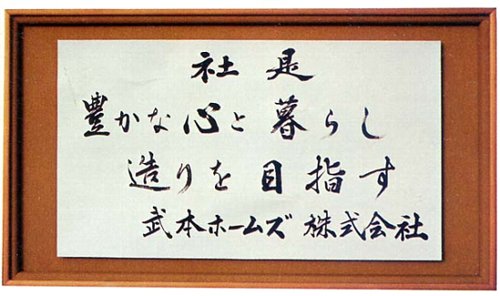 社是
豊かな心と暮らし
造りを目指す
武本ホームズ株式会社